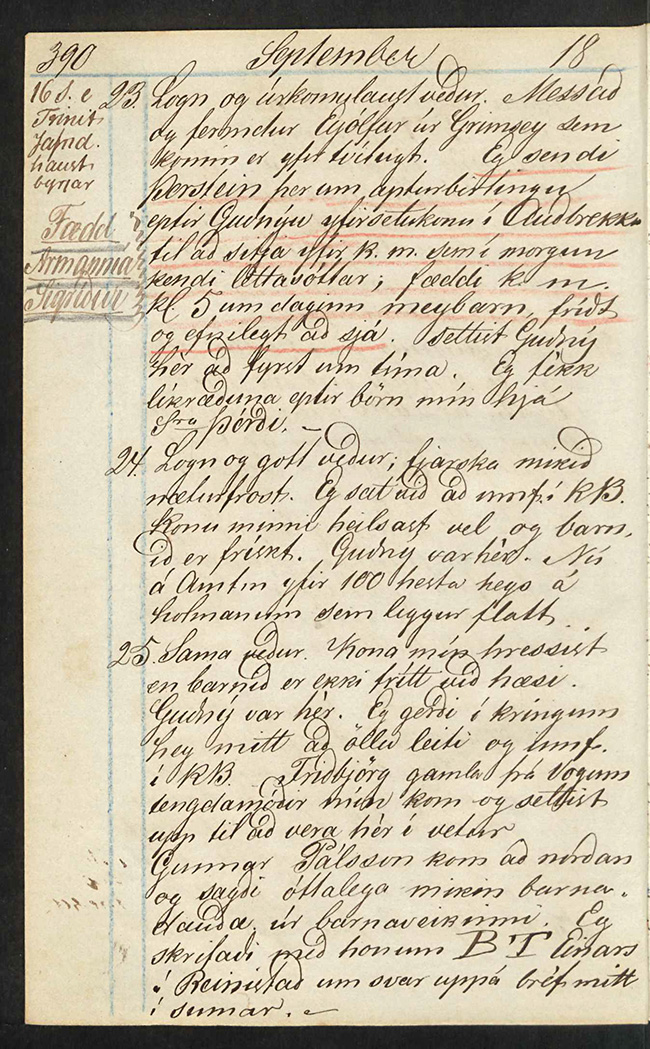 390 September 18
16 S. e
Trinit
Jafnd.
haust
byrjar
Fædd
Armannia
Sigríður
23. Logn, og úrkomulaust veður. Messað
og fermdur Eyólfar úr Grímsey sem
komin er yfir tvítugt. Eg sendi
Þorstein hér um apturbirtingu
eptir Guðnýu yfirsetukonu í Auðbrekk-
til að sitja yfir k. m. sem í morgun
kendi léttasóttar; fæddi k m.
kl 5 um daginn meybarn, frídt
og efnilegt að sjá. settist Guðný
hér að fyrst um tíma. Eg fékk
líkræðuna eptir börn mín hjá
Sra Þórði. –
24. Logn og gott veður; fjarska mikið
næturfrost. Eg sat við að innf. í KB.
Konu minni heilsast vel og barn-
ið er frískt. Guðný var hér. Nú
á Amtm yfir 100 hesta heys á
hólmanum sem liggur flatt.
25. Sama veður. Kona mín hressist
en barnið er ekki frítt við hæsi.
Guðný var hér. Eg gerði í kríngum
hey mitt að öllu leiti og innf.
í KB Friðbjörg gamla frá Vogum
tengdamóðir mín kom og settist
upp til að vera hér í vetur
Gunnar Pálsson kom að norðan
og sagði óttalega mikin barna-
dauða úr barnaveikinni. Eg
skrifaði með honum BT Einars
í Reinistað um svar uppá bréf mitt
í sumar. –